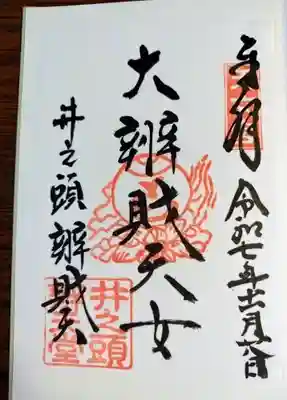 奉拝
令和七年十一月六日
大辨財天女
井之頭辨財天
井之頭